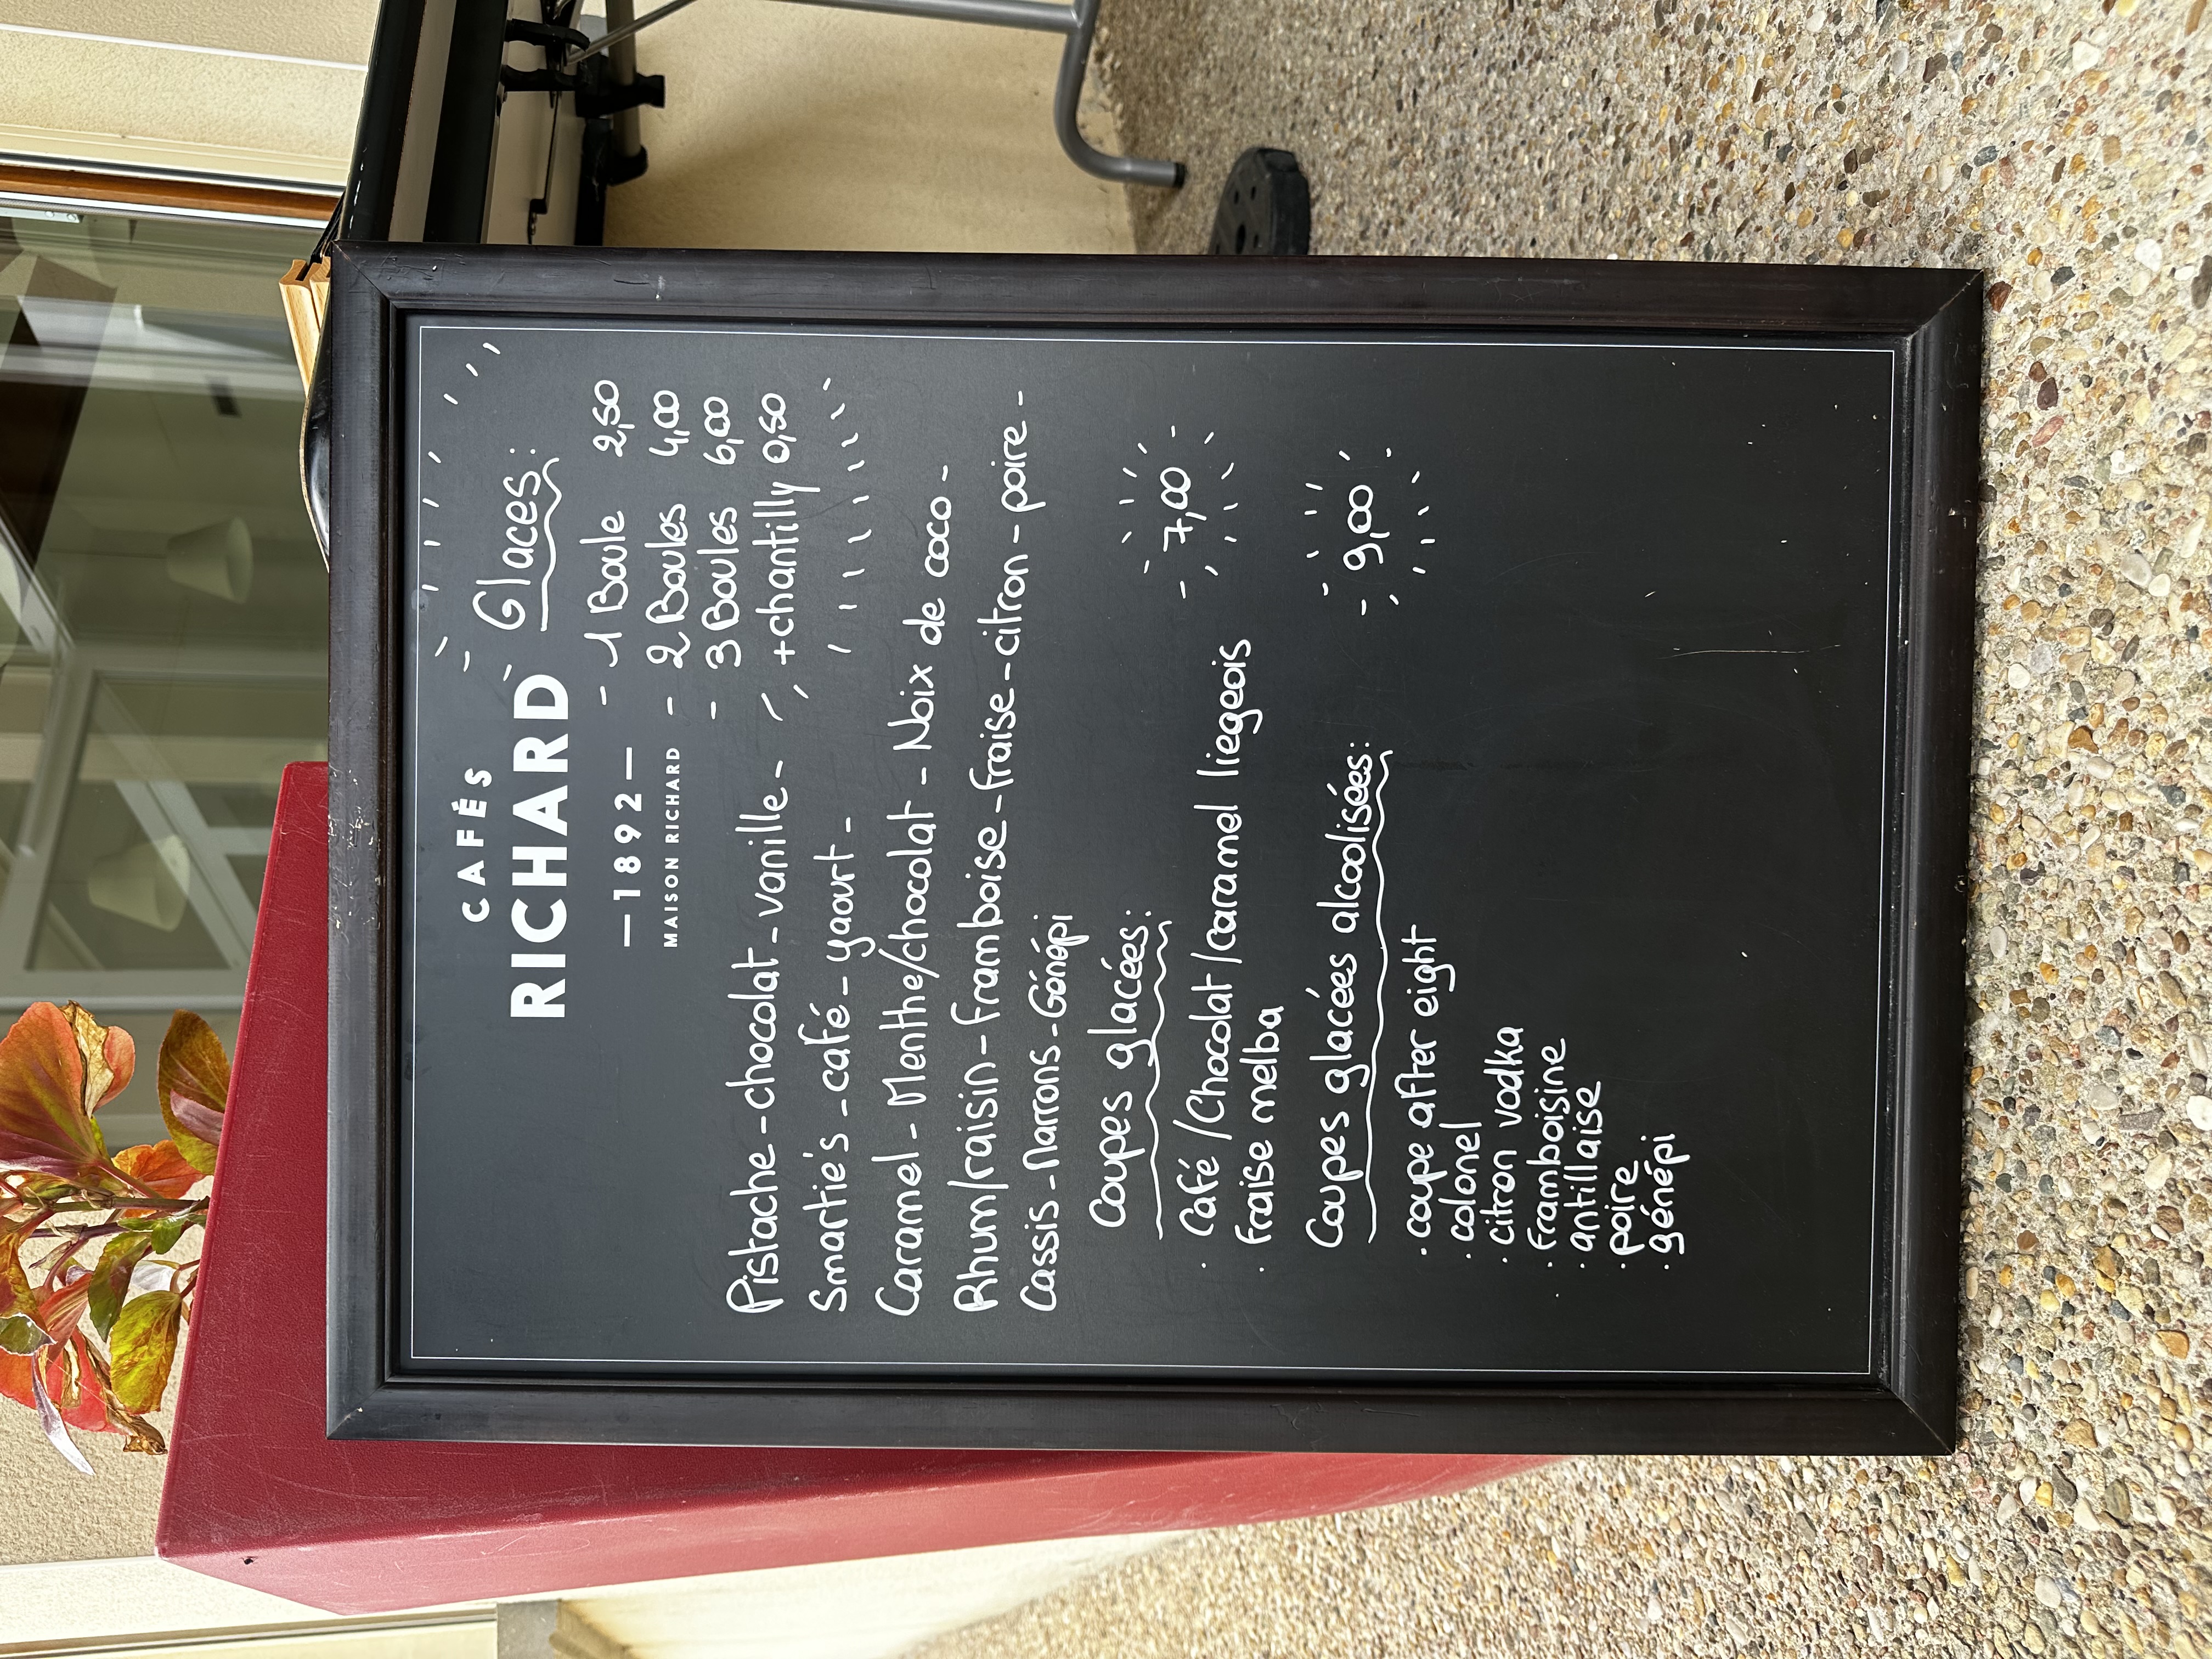 CAFÉS
RICHARD
—1892—
MAISON RICHARD
Glaces:
- 1 Boule 2,50
- 2 Boules 4,00
- 3 Boules 6,00
+chantilly 0,50
Pistache - chocolat - vanille -
Smartie's - café - yaourt -
Caramel - Menthe/chocolat - Noix de coco -
Rhum/raisin - framboise - fraise - citron - poire -
Cassis - Marrons - Génépi
Coupes glacées:
. Café /Chocolat /caramel liegeois - 7,00
. fraise melba
Coupes glacées alcoolisées: - 9,00
. coupe after eight
. colonel
. citron vodka
. framboisine
. antillaise
. poire
. génépi